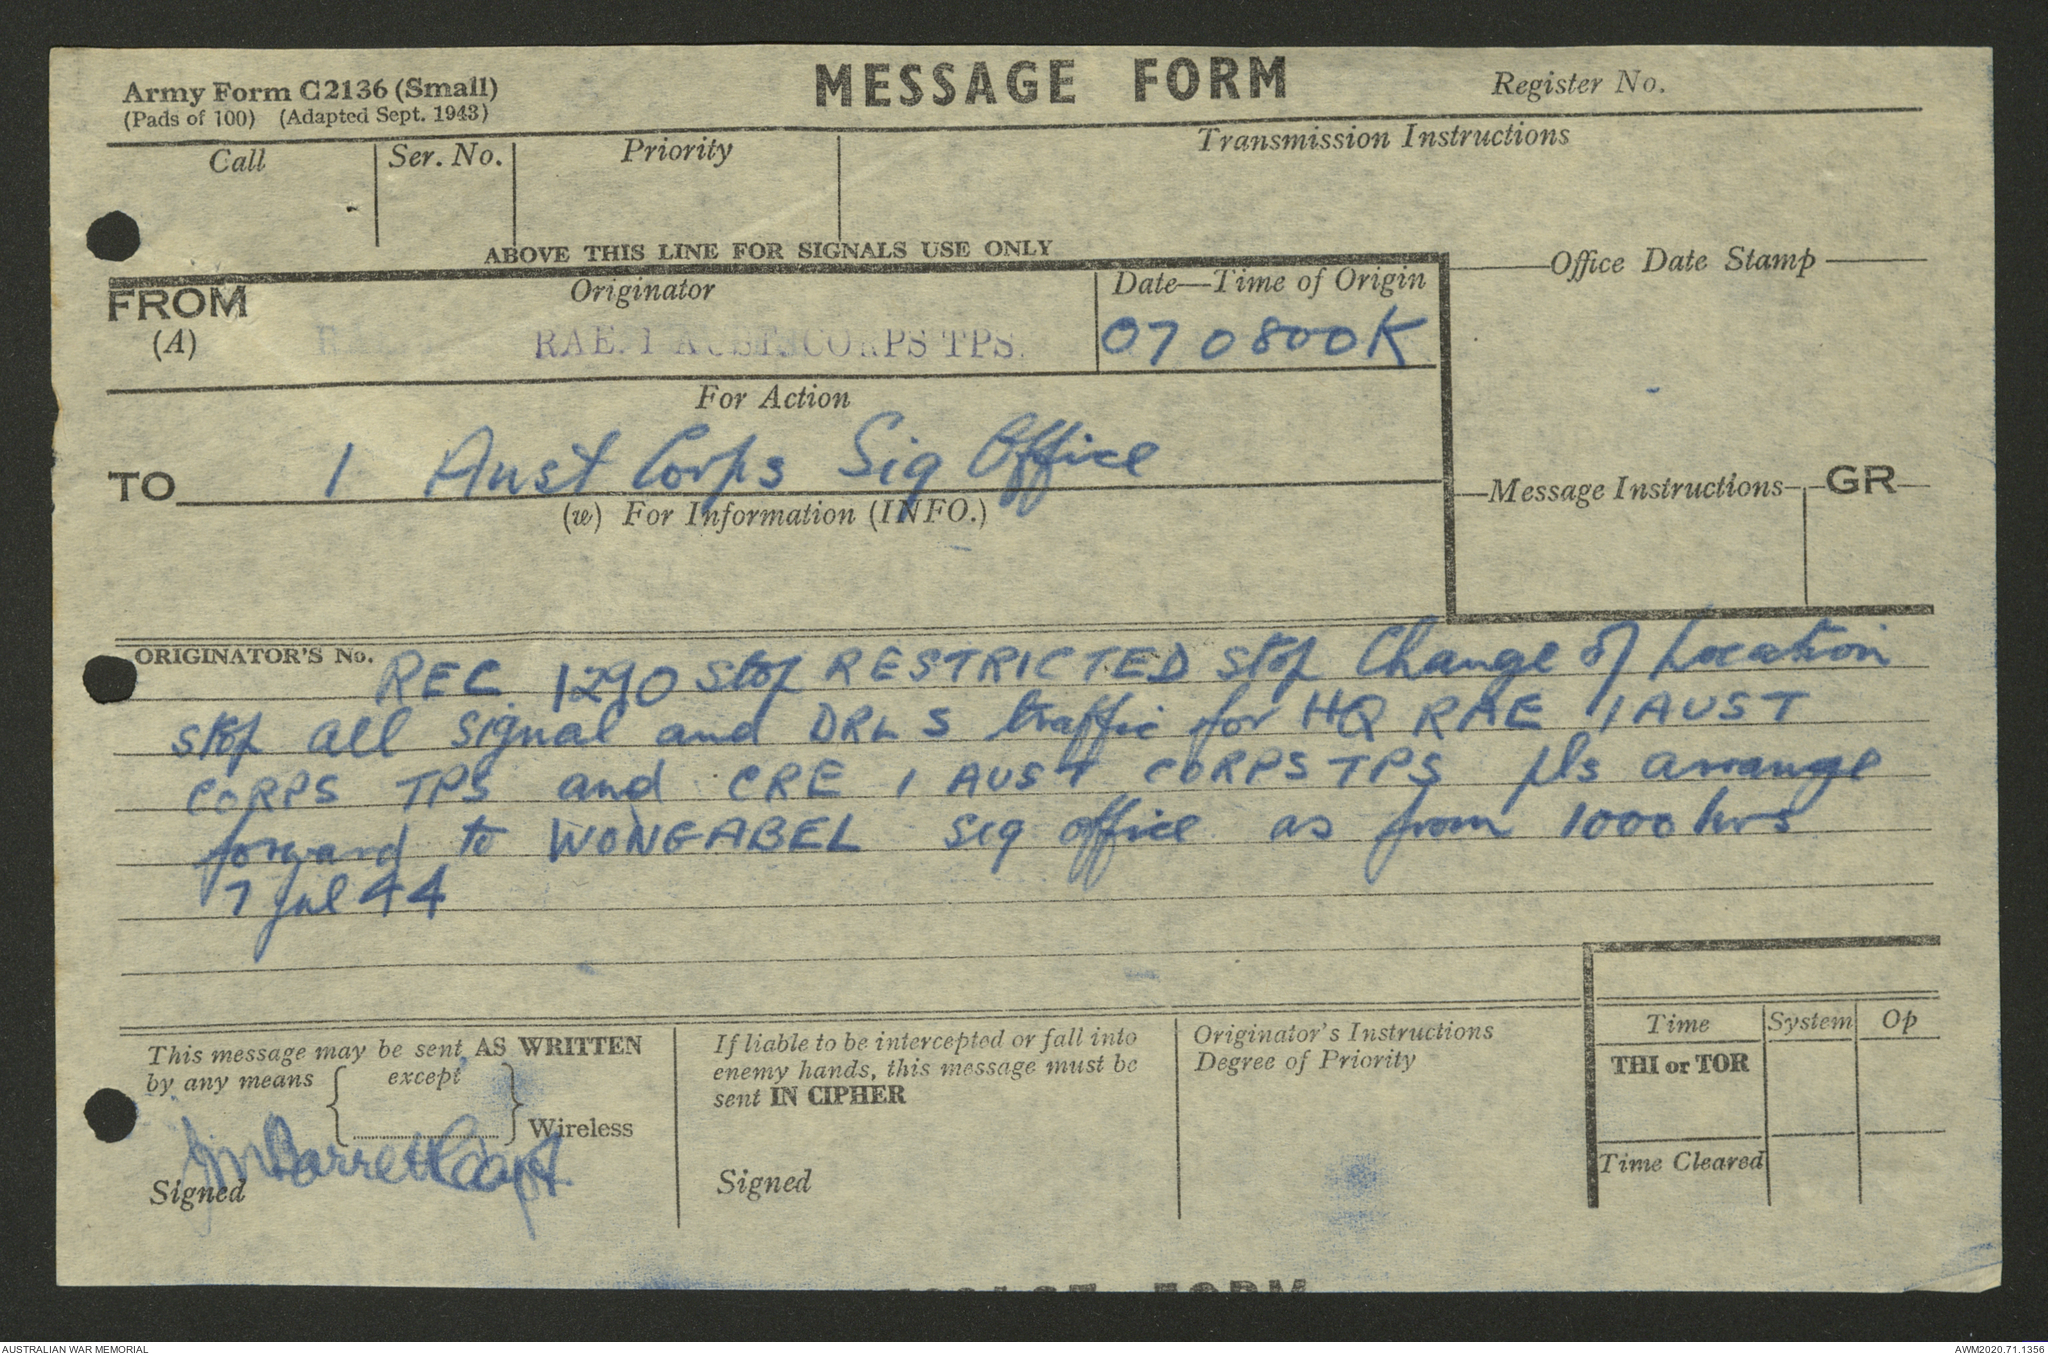 Army Form C2136 (Small)
(Pads of 100) (Adapted Sept. 1943)
MESSAGE FORM
Register No.
Call
Ser. No.
Priority
Transmission Instructions
ABOVE THIS LINE FOR SIGNALS USE ONLY
FROM
(A)
Originator
RAE. 1 AUST. CORPS TPS.
Date—Time of Origin
070800K
Office Date Stamp
For Action
TO
1 Aust Corps Sig Office
(w) For Information (INFO.)
Message Instructions
GR
ORIGINATOR'S No.
REC 1290 stop RESTRICTED stop Change of Location
stop all signal and DRLS traffic for HQ RAE 1 AUST
CORPS TPS and CRE 1 AUST CORPS TPS pls arrange
forward to WONGABEL sig office as from 1000 hrs
7 Jul 44
This message may be sent AS WRITTEN
by any means except
Wireless
Signed
Barrett Capt.
If liable to be intercepted or fall into
enemy hands, this message must be
sent IN CIPHER
Signed
Originator's Instructions
Degree of Priority
Time
System
Op
THI or TOR
Time Cleared
MESSAGE FORM
AUSTRALIAN WAR MEMORIAL
AWM2020.71.1356